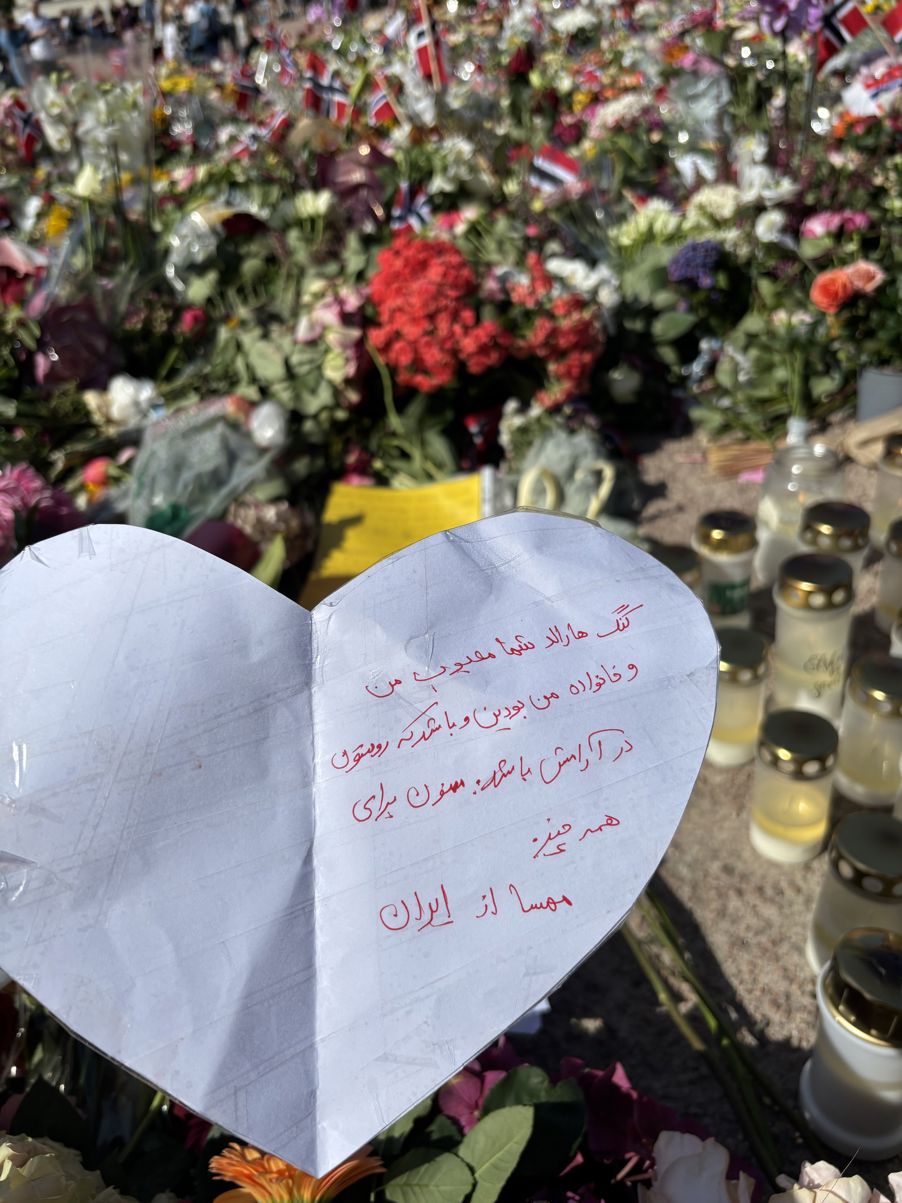 کنگ هارالد شما محبوب من
و خانواده من بودین و باشد که روحتون
در آرامش باشد. ممنون برای
همه چیز.
مهسا از ایران